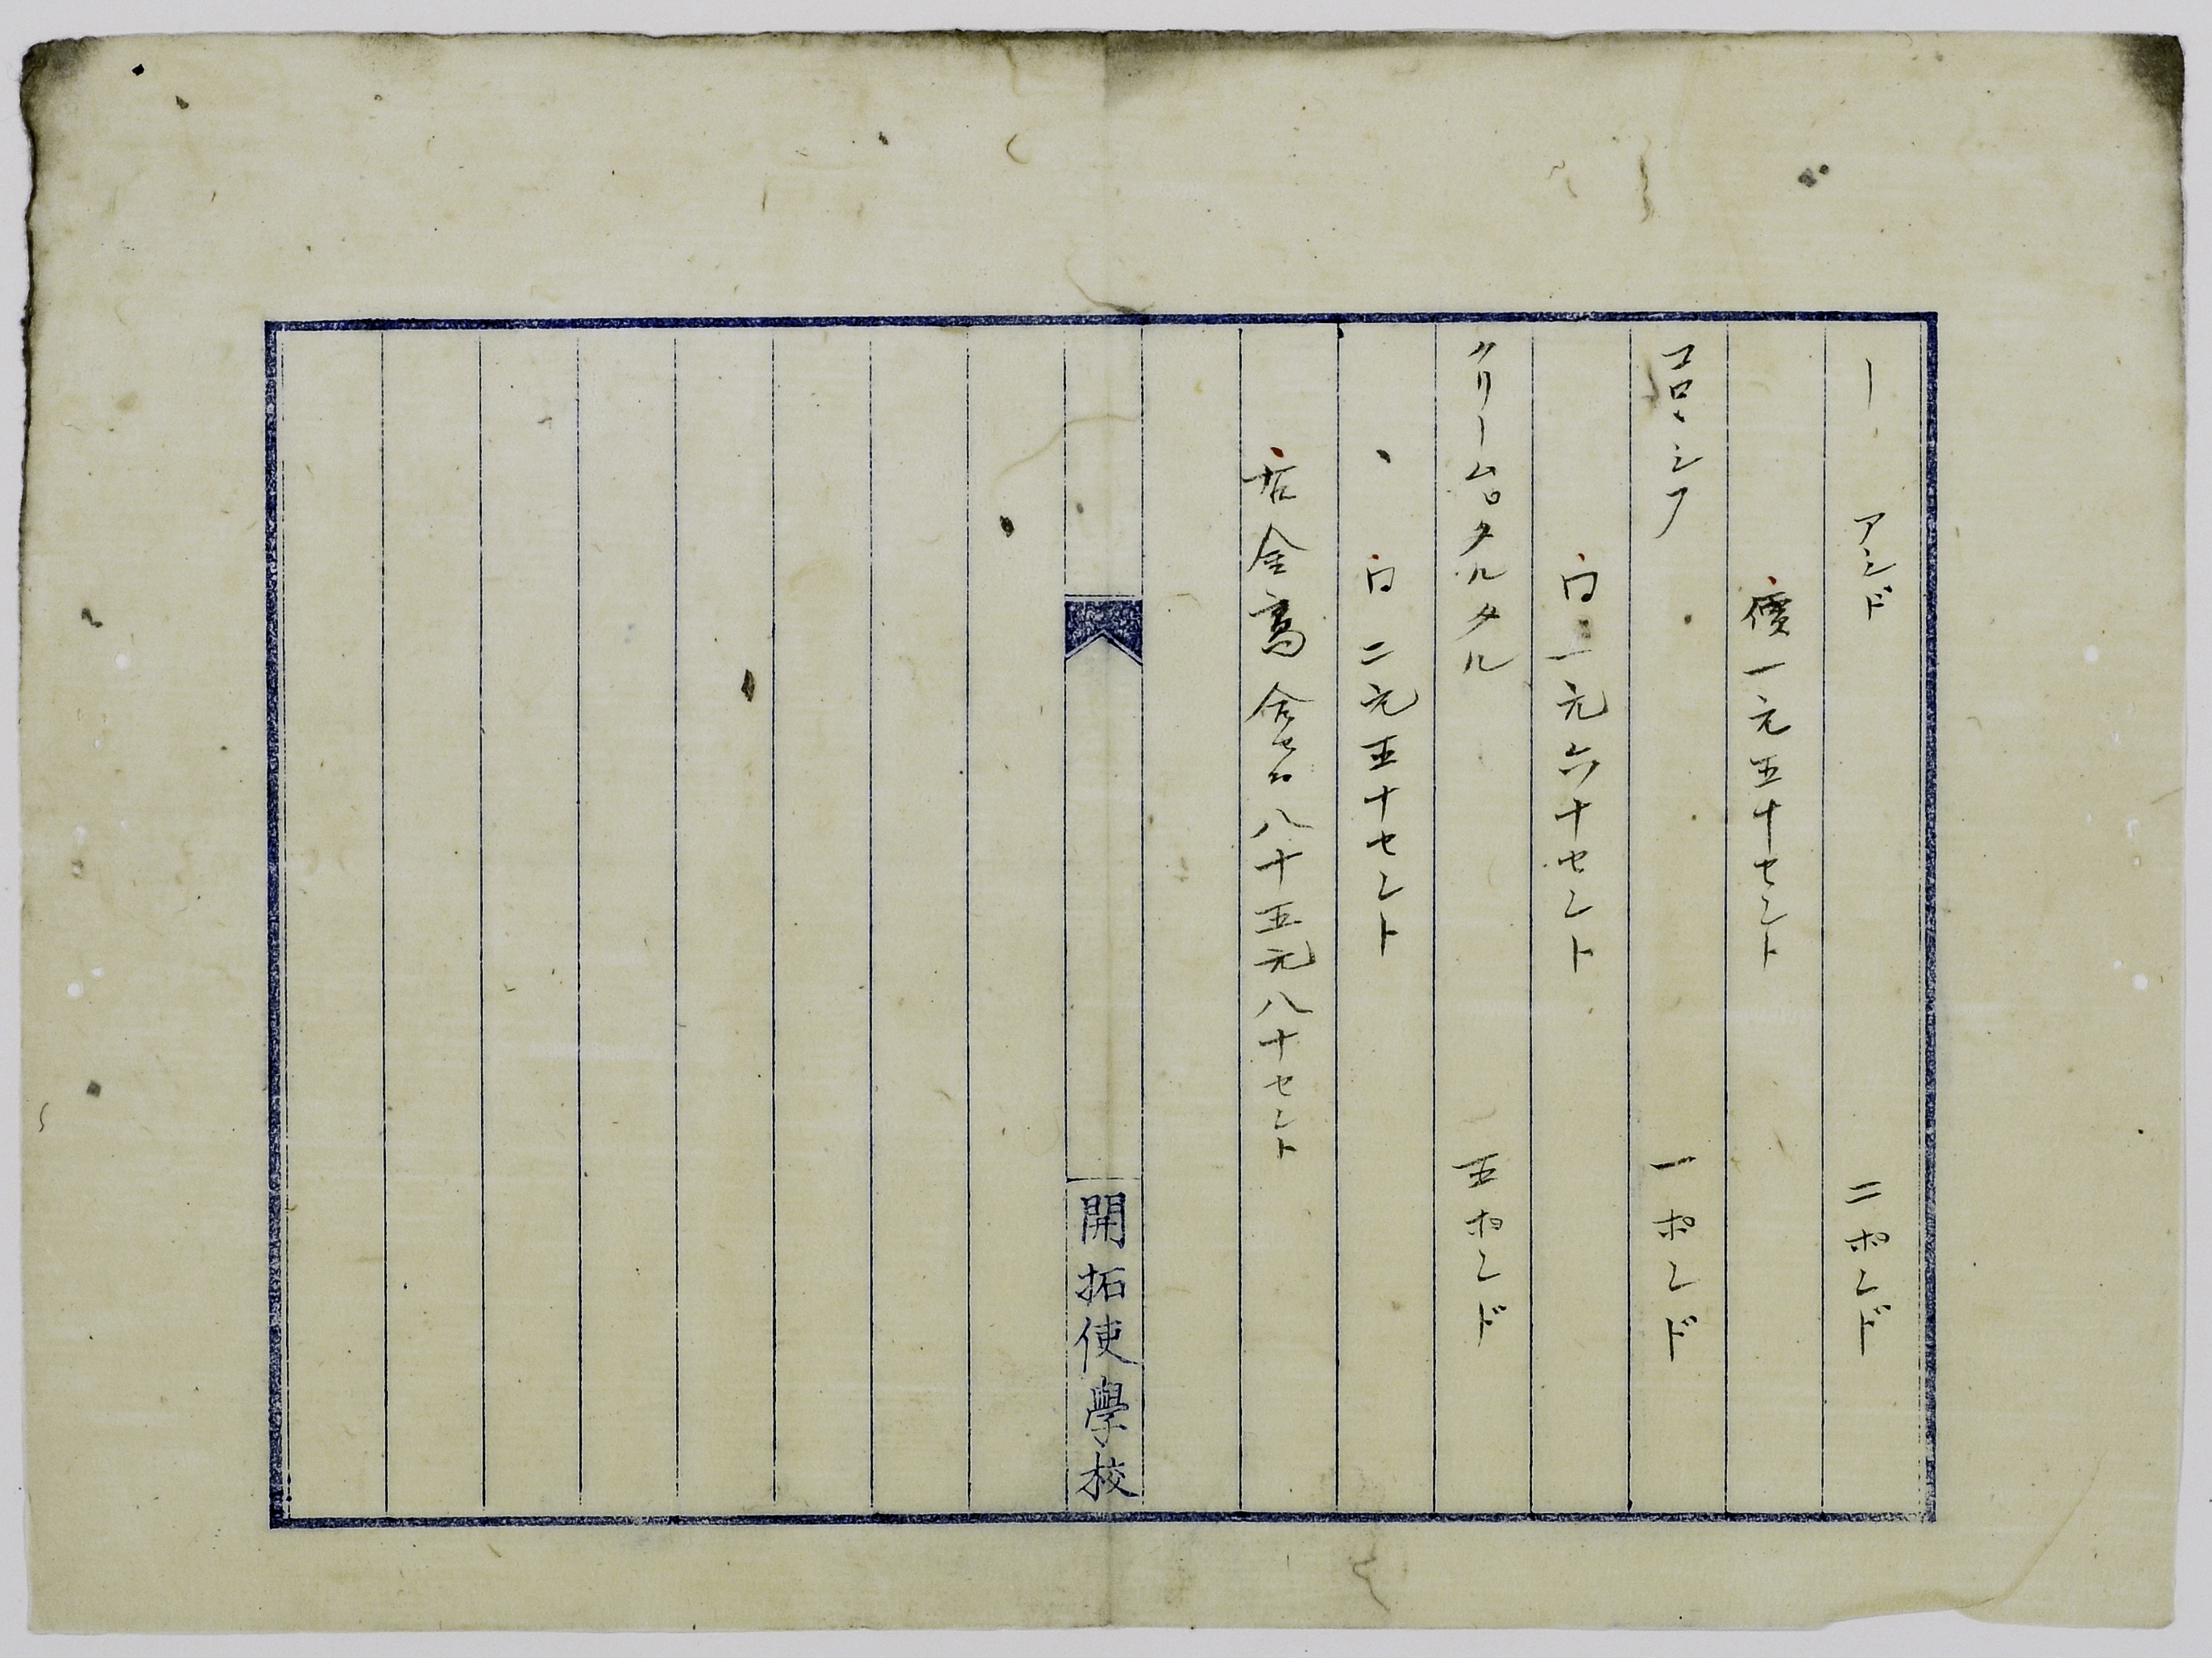 ー アシド 二ポンド
價一元五十セント
一ポンド
同一元六十セント
クリーム タルタル 五ポンド
同 二元五十セント
右金高 八十五元八十セント
開拓使學校